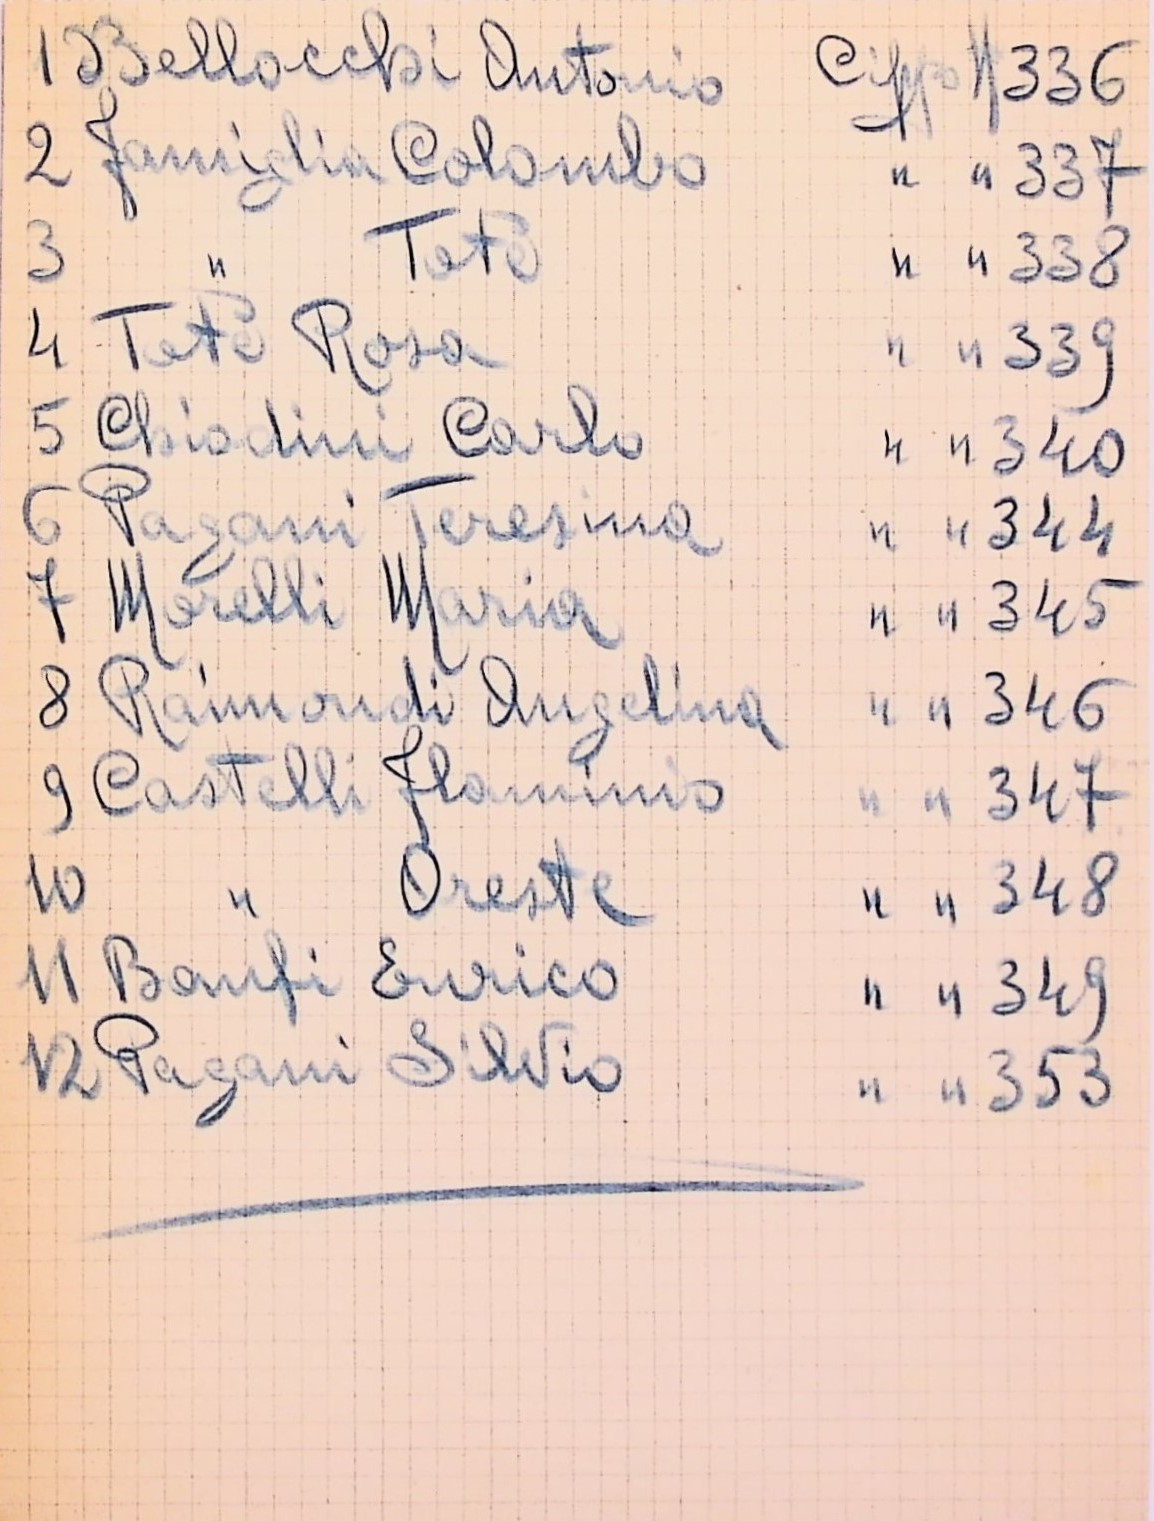 1 Bellocchi Antonio Cippo N 336
2 Famiglia Colombo " " 337
3 " Totè " " 338
4 Totè Rosa " " 339
5 Chiodini Carlo " " 340
6 Pagani Teresina " " 344
7 Morelli Maria " " 345
8 Raimondi Angelina " " 346
9 Castelli Flaminio " " 347
10 " Oreste " " 348
11 Banfi Enrico " " 349
12 Pagani Silvio " " 353